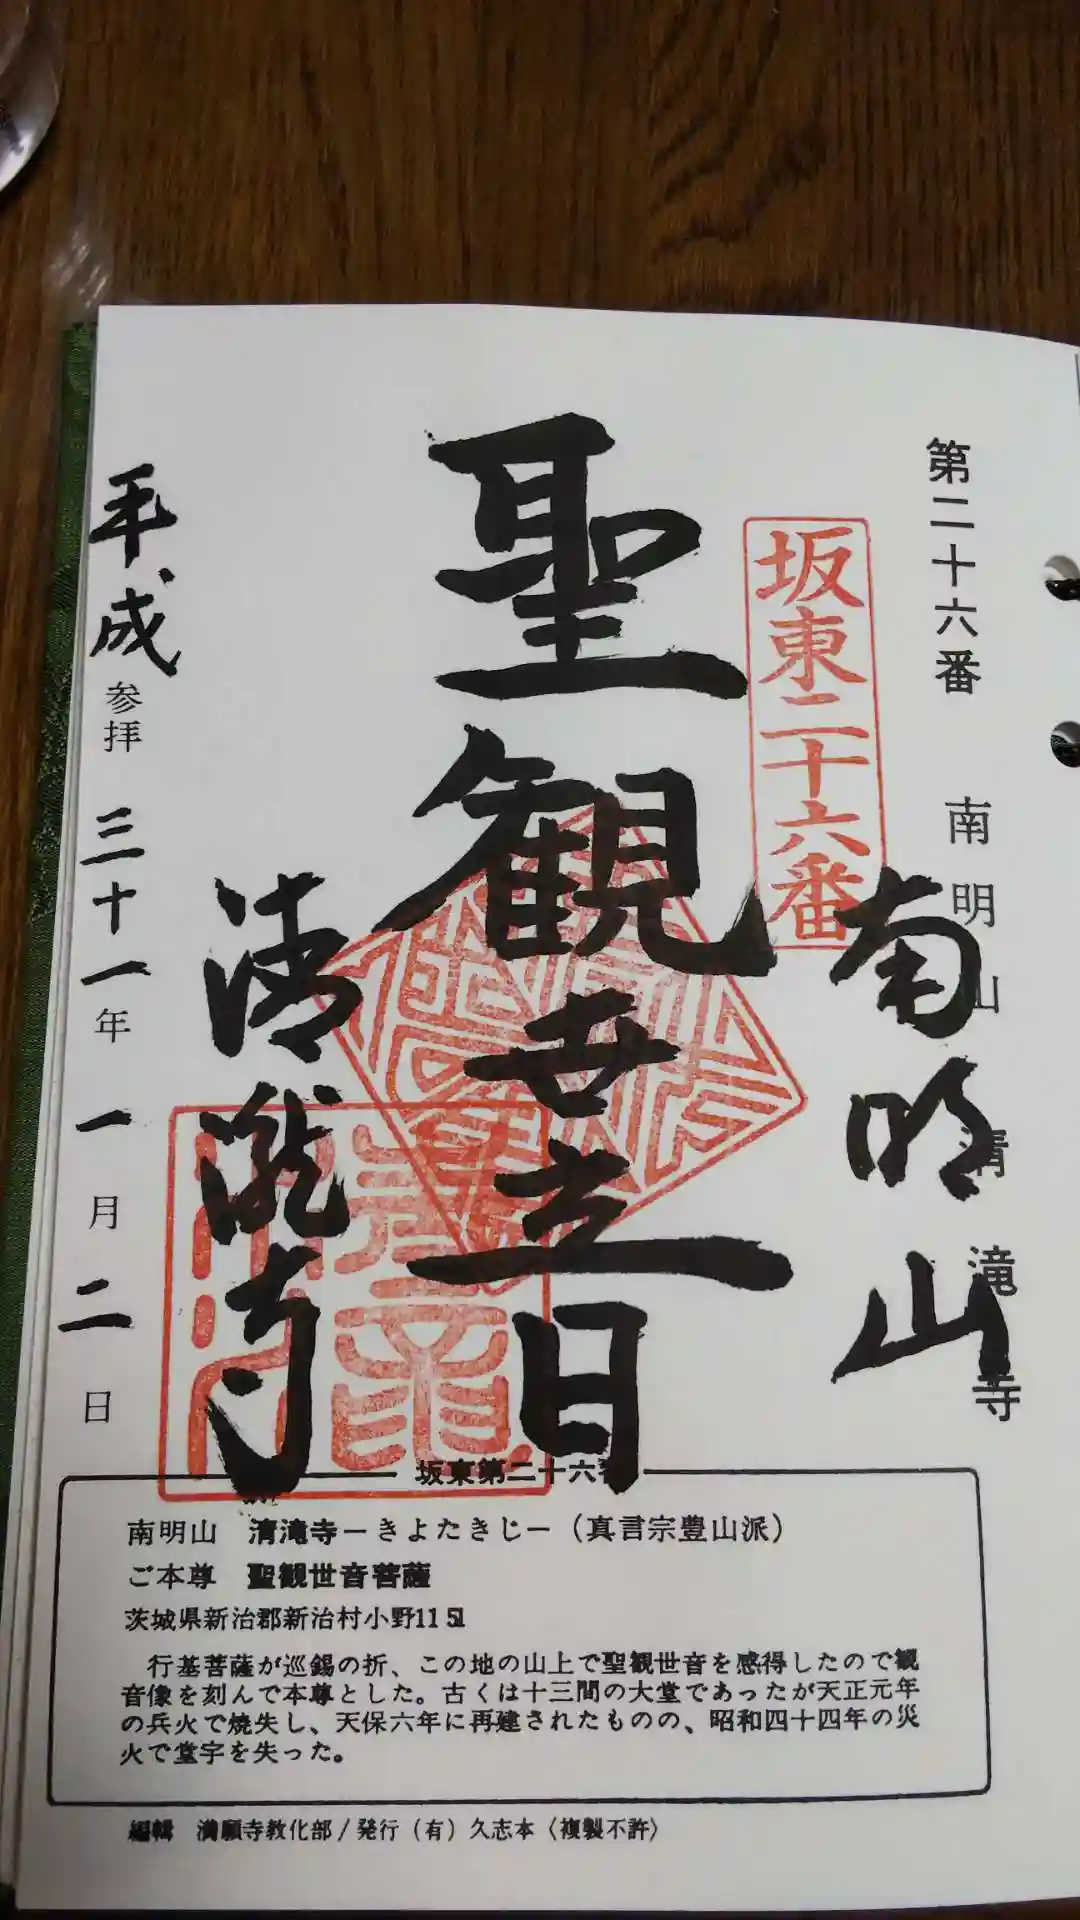 第二十六番 南明山 清滝寺
坂東二十六番
南明山
聖観世音
清瀧寺
平成 参拝 三十一年 一月 二日
坂東第二十六番
南明山 清滝寺－きよたきじ－（真言宗豊山派）
ご本尊 聖観世音菩薩
茨城県新治郡新治村小野1151
行基菩薩が巡錫の折、この地の山上で聖観世音を感得したので観
音像を刻んで本尊とした。古くは十三間の大堂であったが天正元年
の兵火で焼失し、天保六年に再建されたものの、昭和四十四年の災
火で堂字を失った。
編輯 満願寺教化部/発行（有）久志本〈複製不許〉